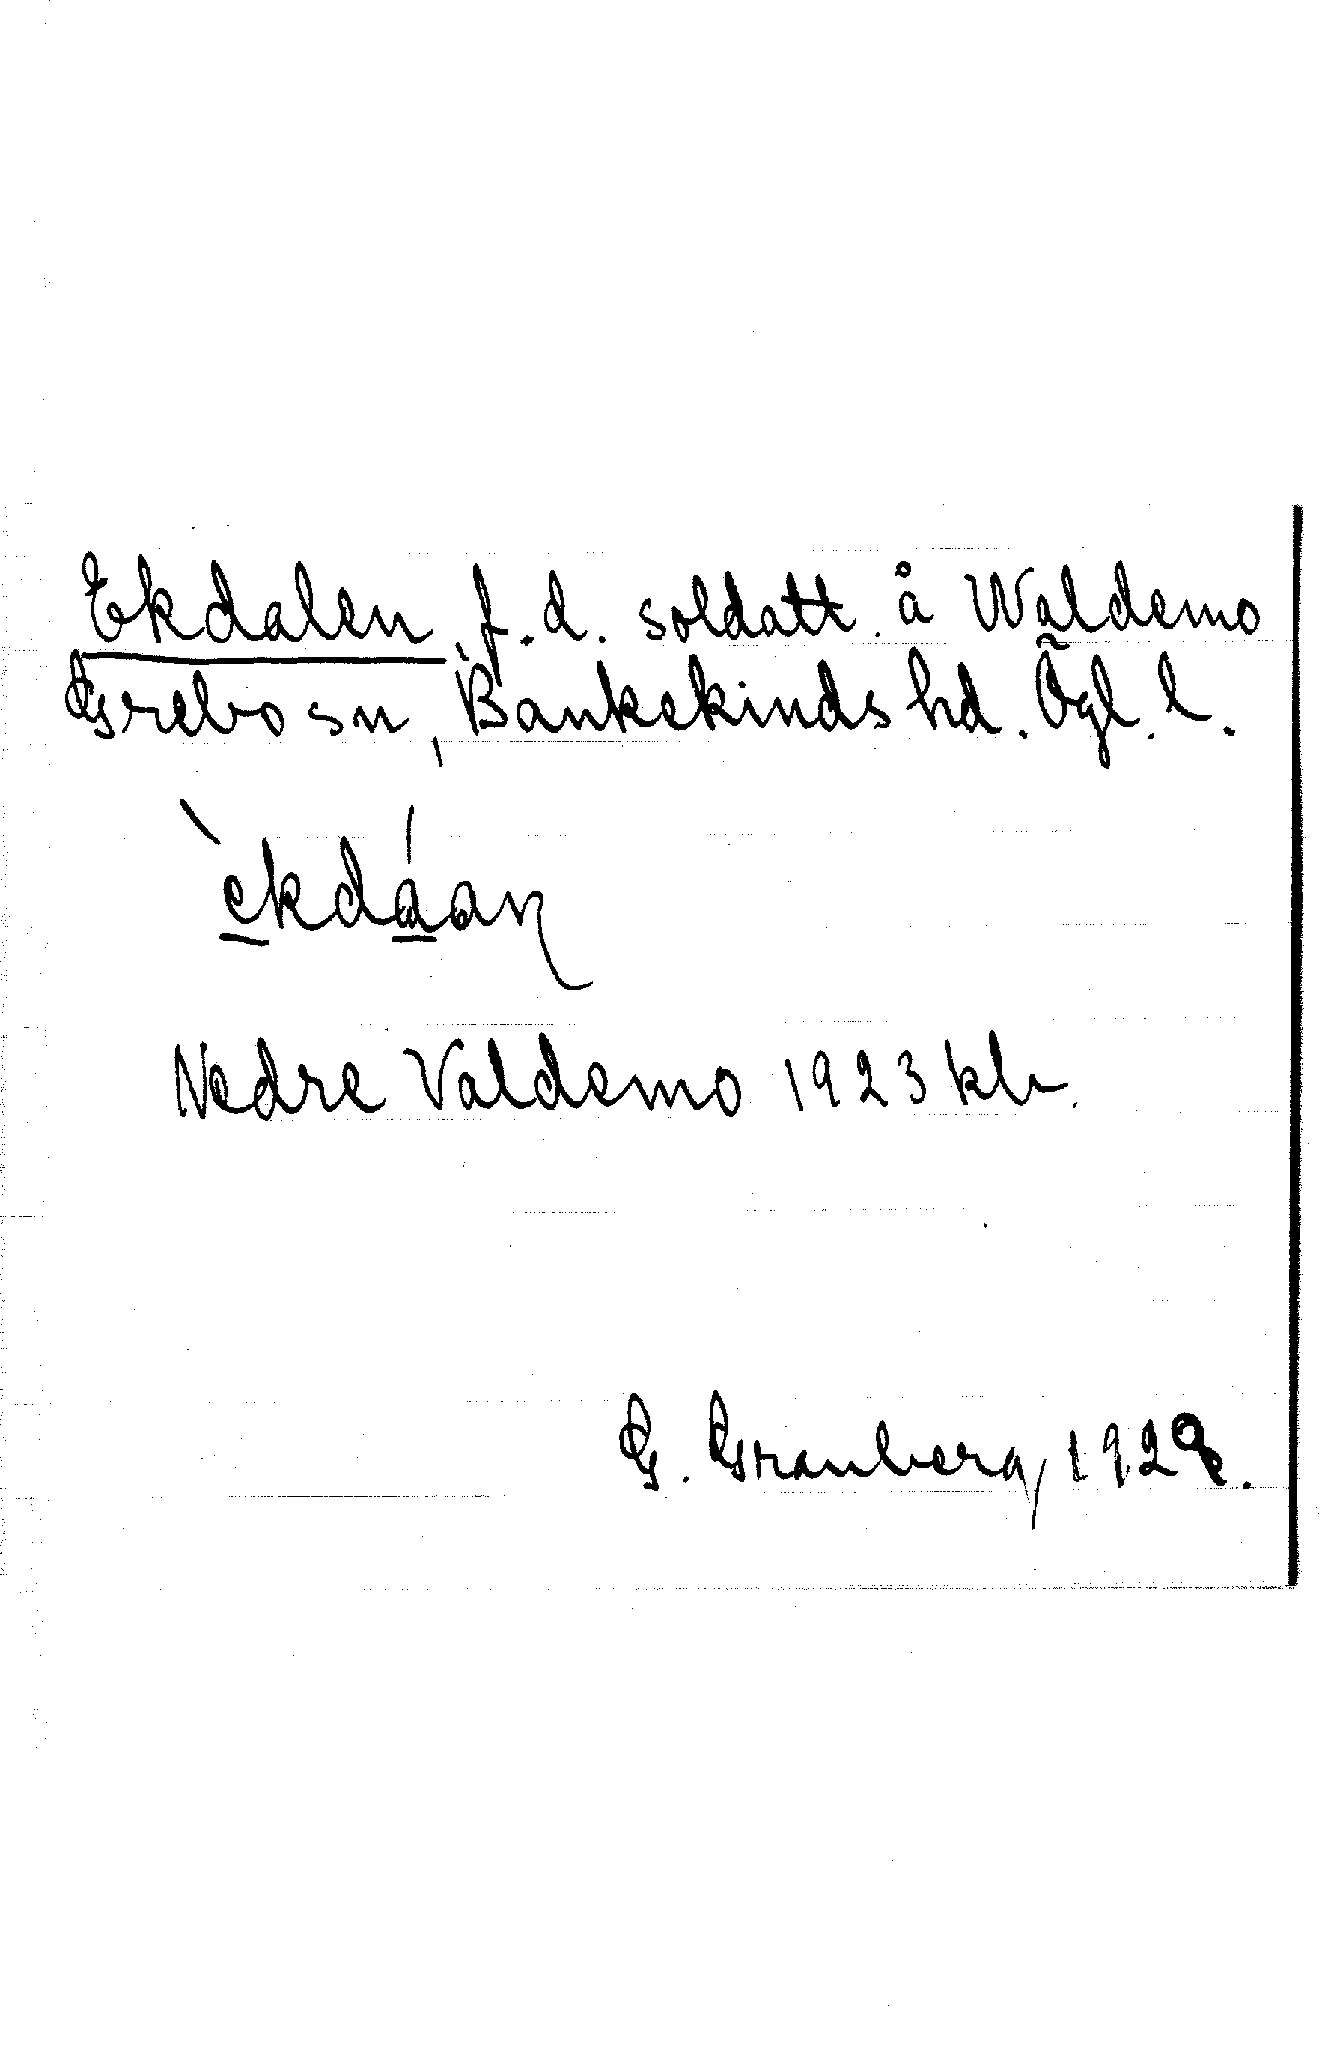 Ekdalen, f.d. soldatt. å Waldemo
Grebo sn, Bankekinds hd. Ögl. l.
èkdáaṇ
Nedre Valdemo 1923 kl.
G. Granberg 1929.